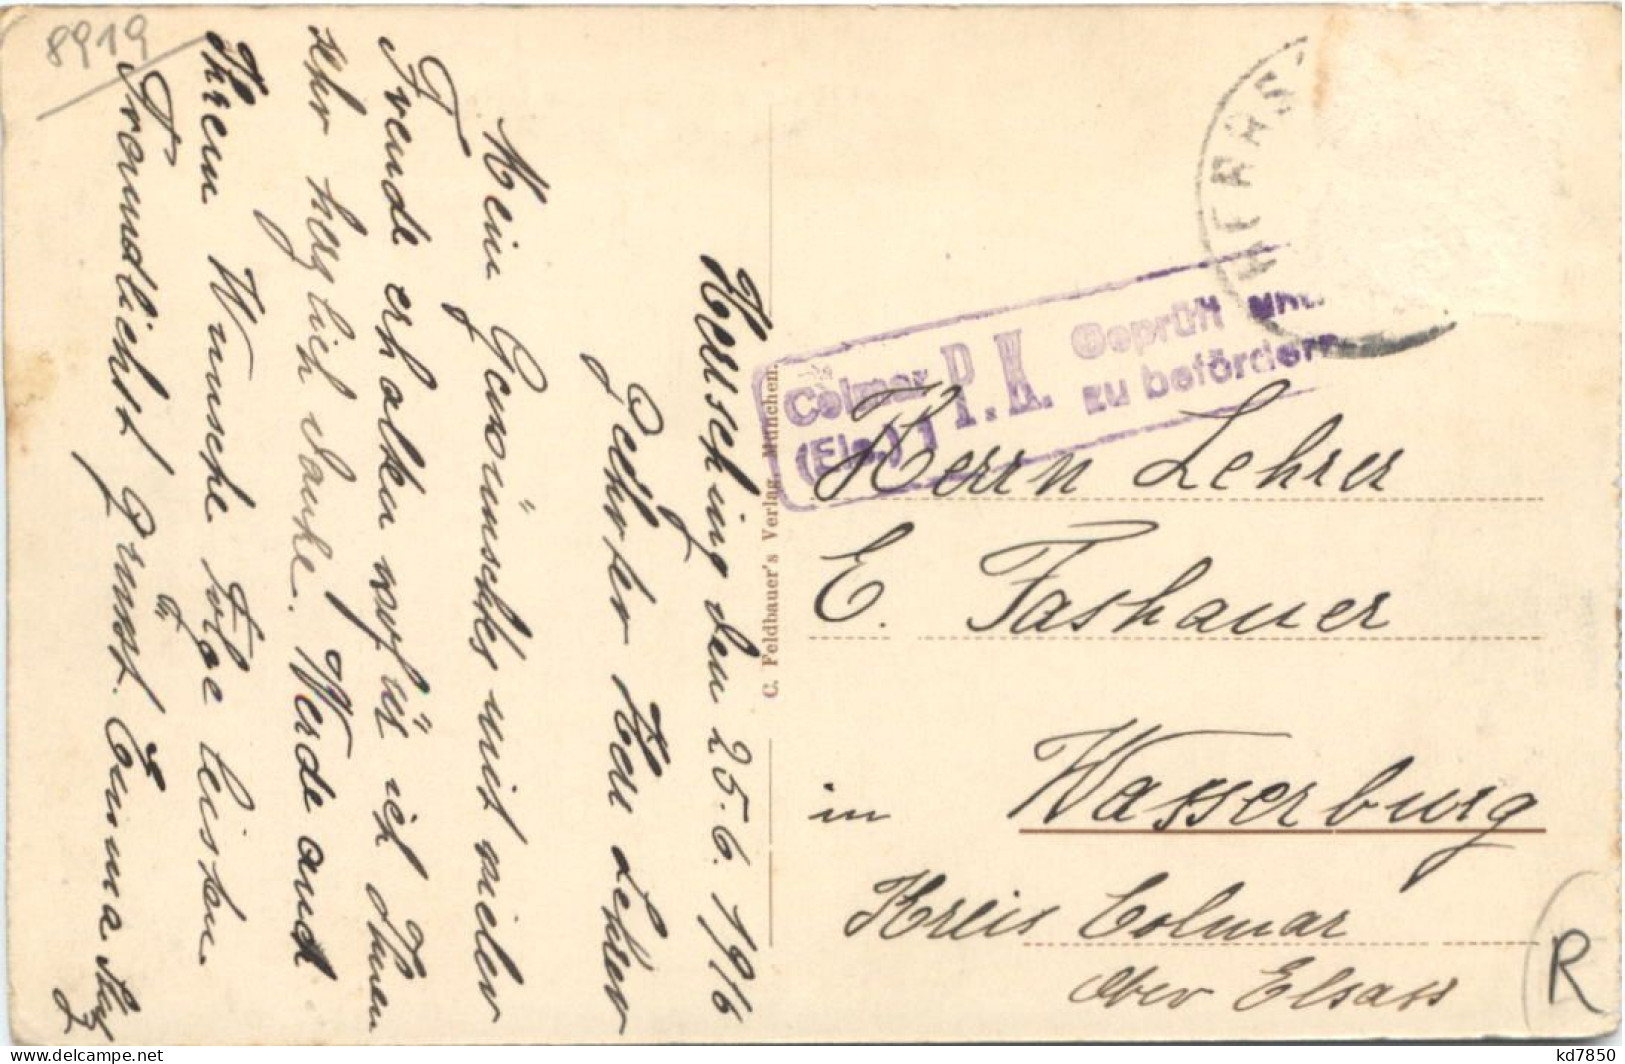 8919
Herrsching den 25.6.1916
Geehrter Herr Lehrer
Mein Gewünschtes mit vieler
Freude erhalten wofür ich Ihnen
sehr herzlich danke. Werde auch
Ihrem Wunsche Folge leisten
Freundlichst Grüsst Emma
C. Feldbauer's Verlag, München.
HERRS
Colmar
(Els.)
P.K.
Geprüft und
zu befördern
Herrn Lehrer
E. Fashauer
in Wasserburg
Kreis Colmar
Ober Elsass
R
kd7850